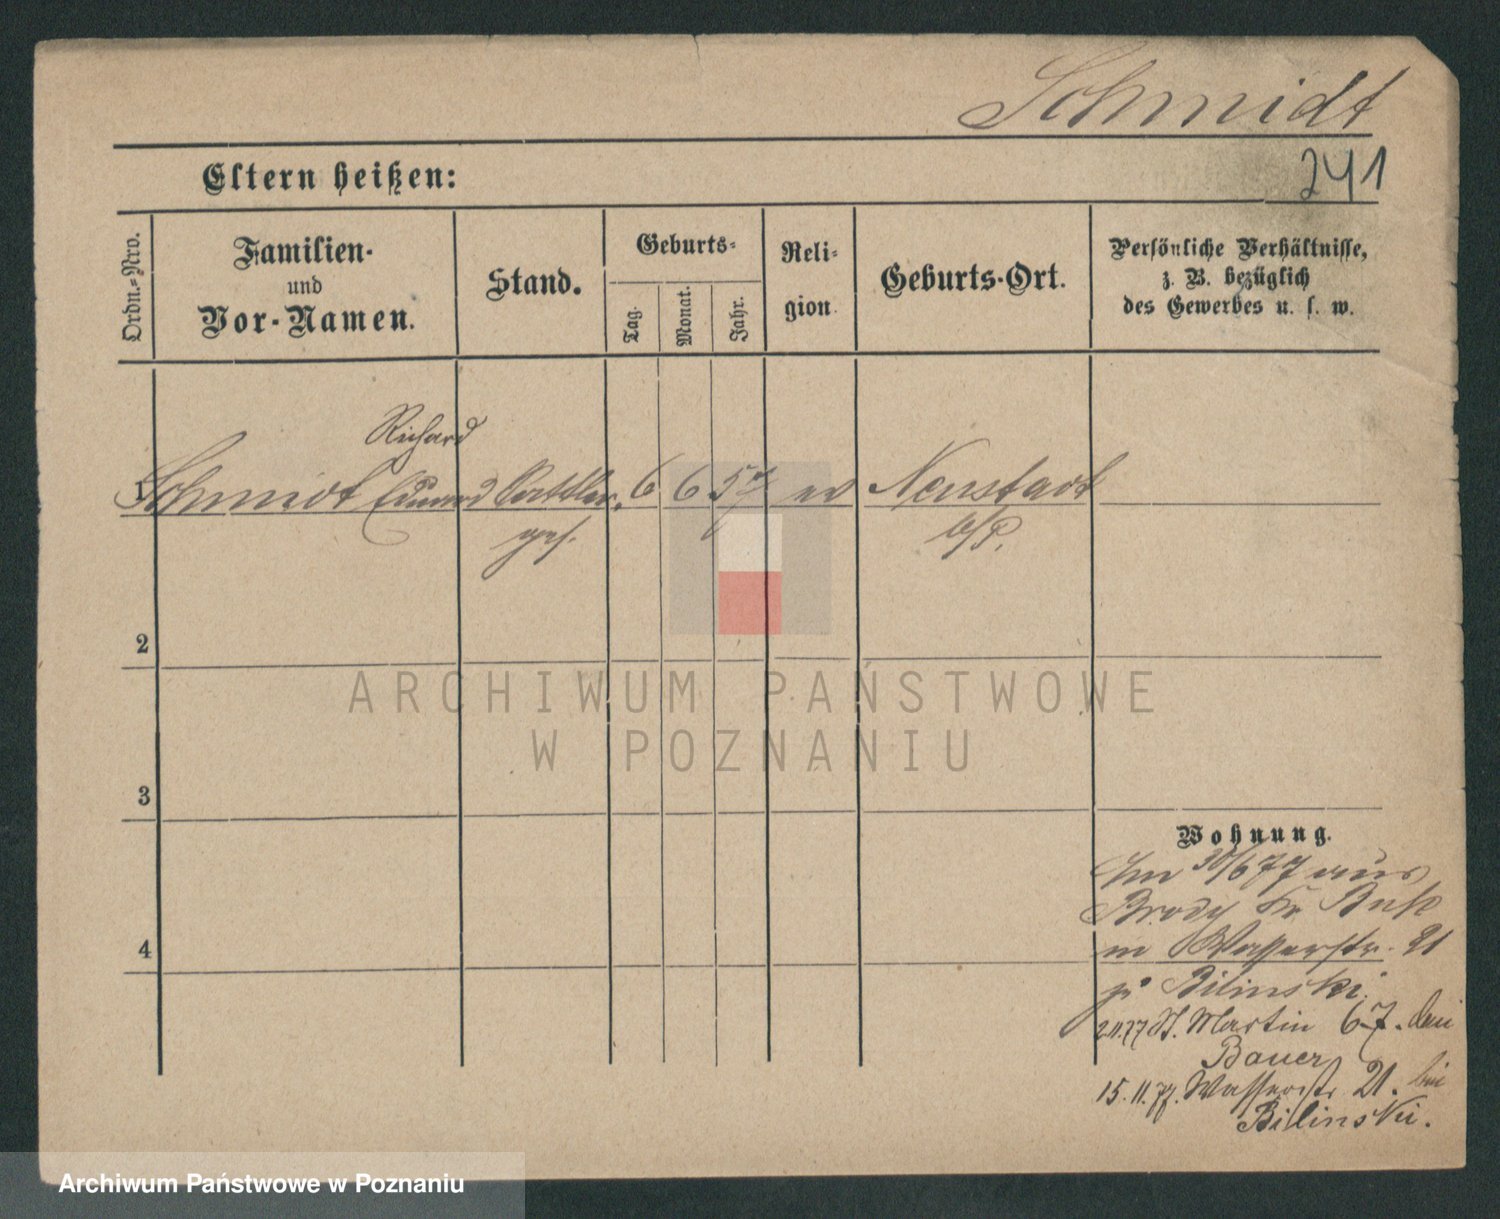 Schmidt
241
Eltern heißen:
Ordn.-Nro.
Familien-
und
Vor-Namen.
Stand.
Geburts-
Tag.
Monat.
Jahr.
Reli-
gion.
Geburts-Ort.
Persönliche Verhältnisse,
z. B. bezüglich
des Gewerbes u. s. w.
Richard
1 Schmidt Eduard Sattler 6 6 57 ev Neustadt
ges. b/P.
2
3
4
Wohnung.
Am 30/6 77 aus
Brody Kr Buk
in Wasserstr. 21
zu Bilinski
2.11.77 St. Martin 67. bei
Bauer
15.11.77. Wasserstr 21. bei
Bilinski.
ARCHIWUM PAŃSTWOWE
W POZNANIU
Archiwum Państwowe w Poznaniu